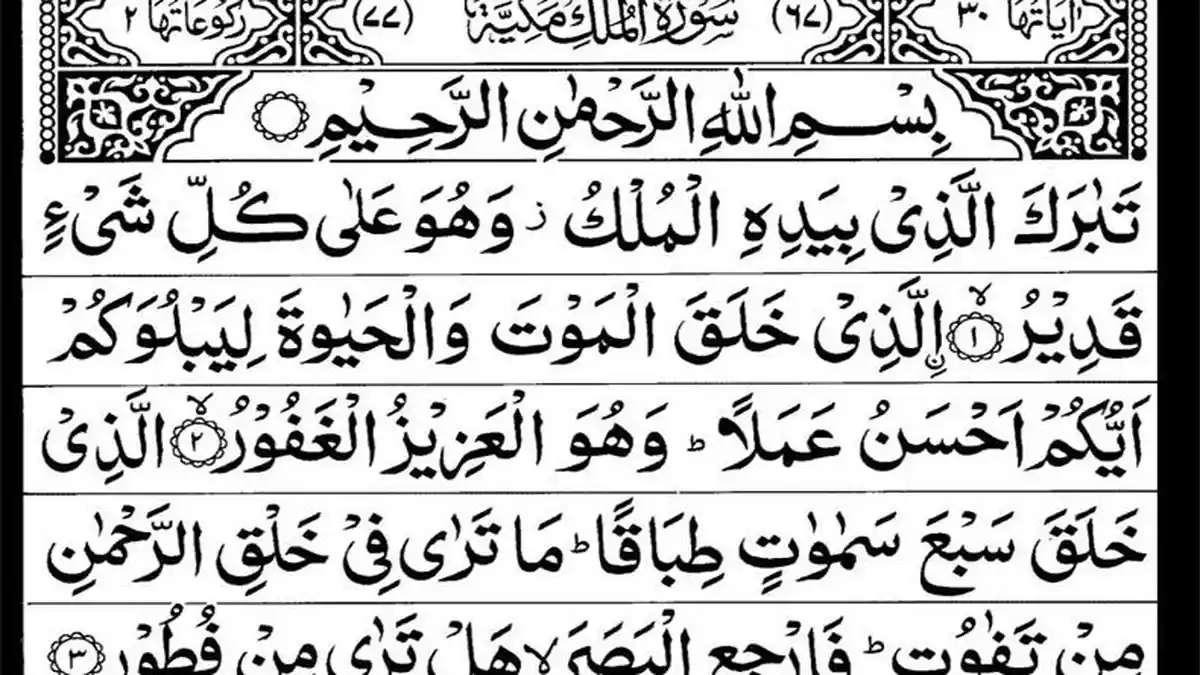 اٰيَاتُهَا ٣٠ (٦٧) سُوْرَةُ الْمُلْكِ مَكِّيَّةٌ (٧٧) رُكُوْعَاتُهَا ٢
بِسْمِ اللّٰهِ الرَّحْمٰنِ الرَّحِيْمِ ۝
تَبٰرَكَ الَّذِيْ بِيَدِهِ الْمُلْكُ ز وَهُوَ عَلٰى كُلِّ شَيْءٍ
قَدِيْرُ ۝١ۙ اِۨلَّذِيْ خَلَقَ الْمَوْتَ وَالْحَيٰوةَ لِيَبْلُوَكُمْ
اَيُّكُمْ اَحْسَنُ عَمَلًا ؕ وَهُوَ الْعَزِيْزُ الْغَفُوْرُ ۝٢ۙ الَّذِيْ
خَلَقَ سَبْعَ سَمٰوٰتٍ طِبَاقًا ؕ مَا تَرٰى فِيْ خَلْقِ الرَّحْمٰنِ
مِنْ تَفٰوُتٍ ؕ فَارْجِعِ الْبَصَرَ ۙ هَلْ تَرٰى مِنْ فُطُوْرٍ ۝٣